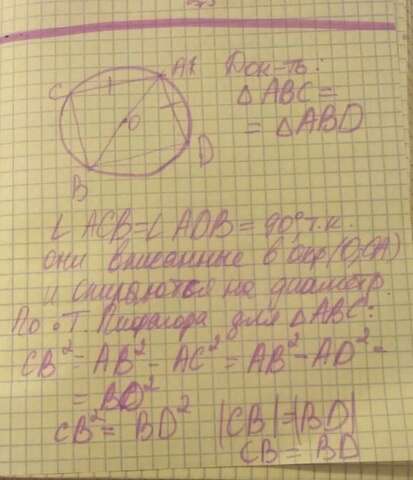 A
C
O
D
B
Док-ть:
△ ABC =
= △ ABD
∠ ACB = ∠ ADB = 90°, т.к.
они вписанные в окр(O;OA)
и опираются на диаметр.
По Т. Пифагора для △ ABC:
CB² = AB² - AC² = AB² - AD² =
= BD²
CB² = BD² |CB| = |BD|
CB = BD